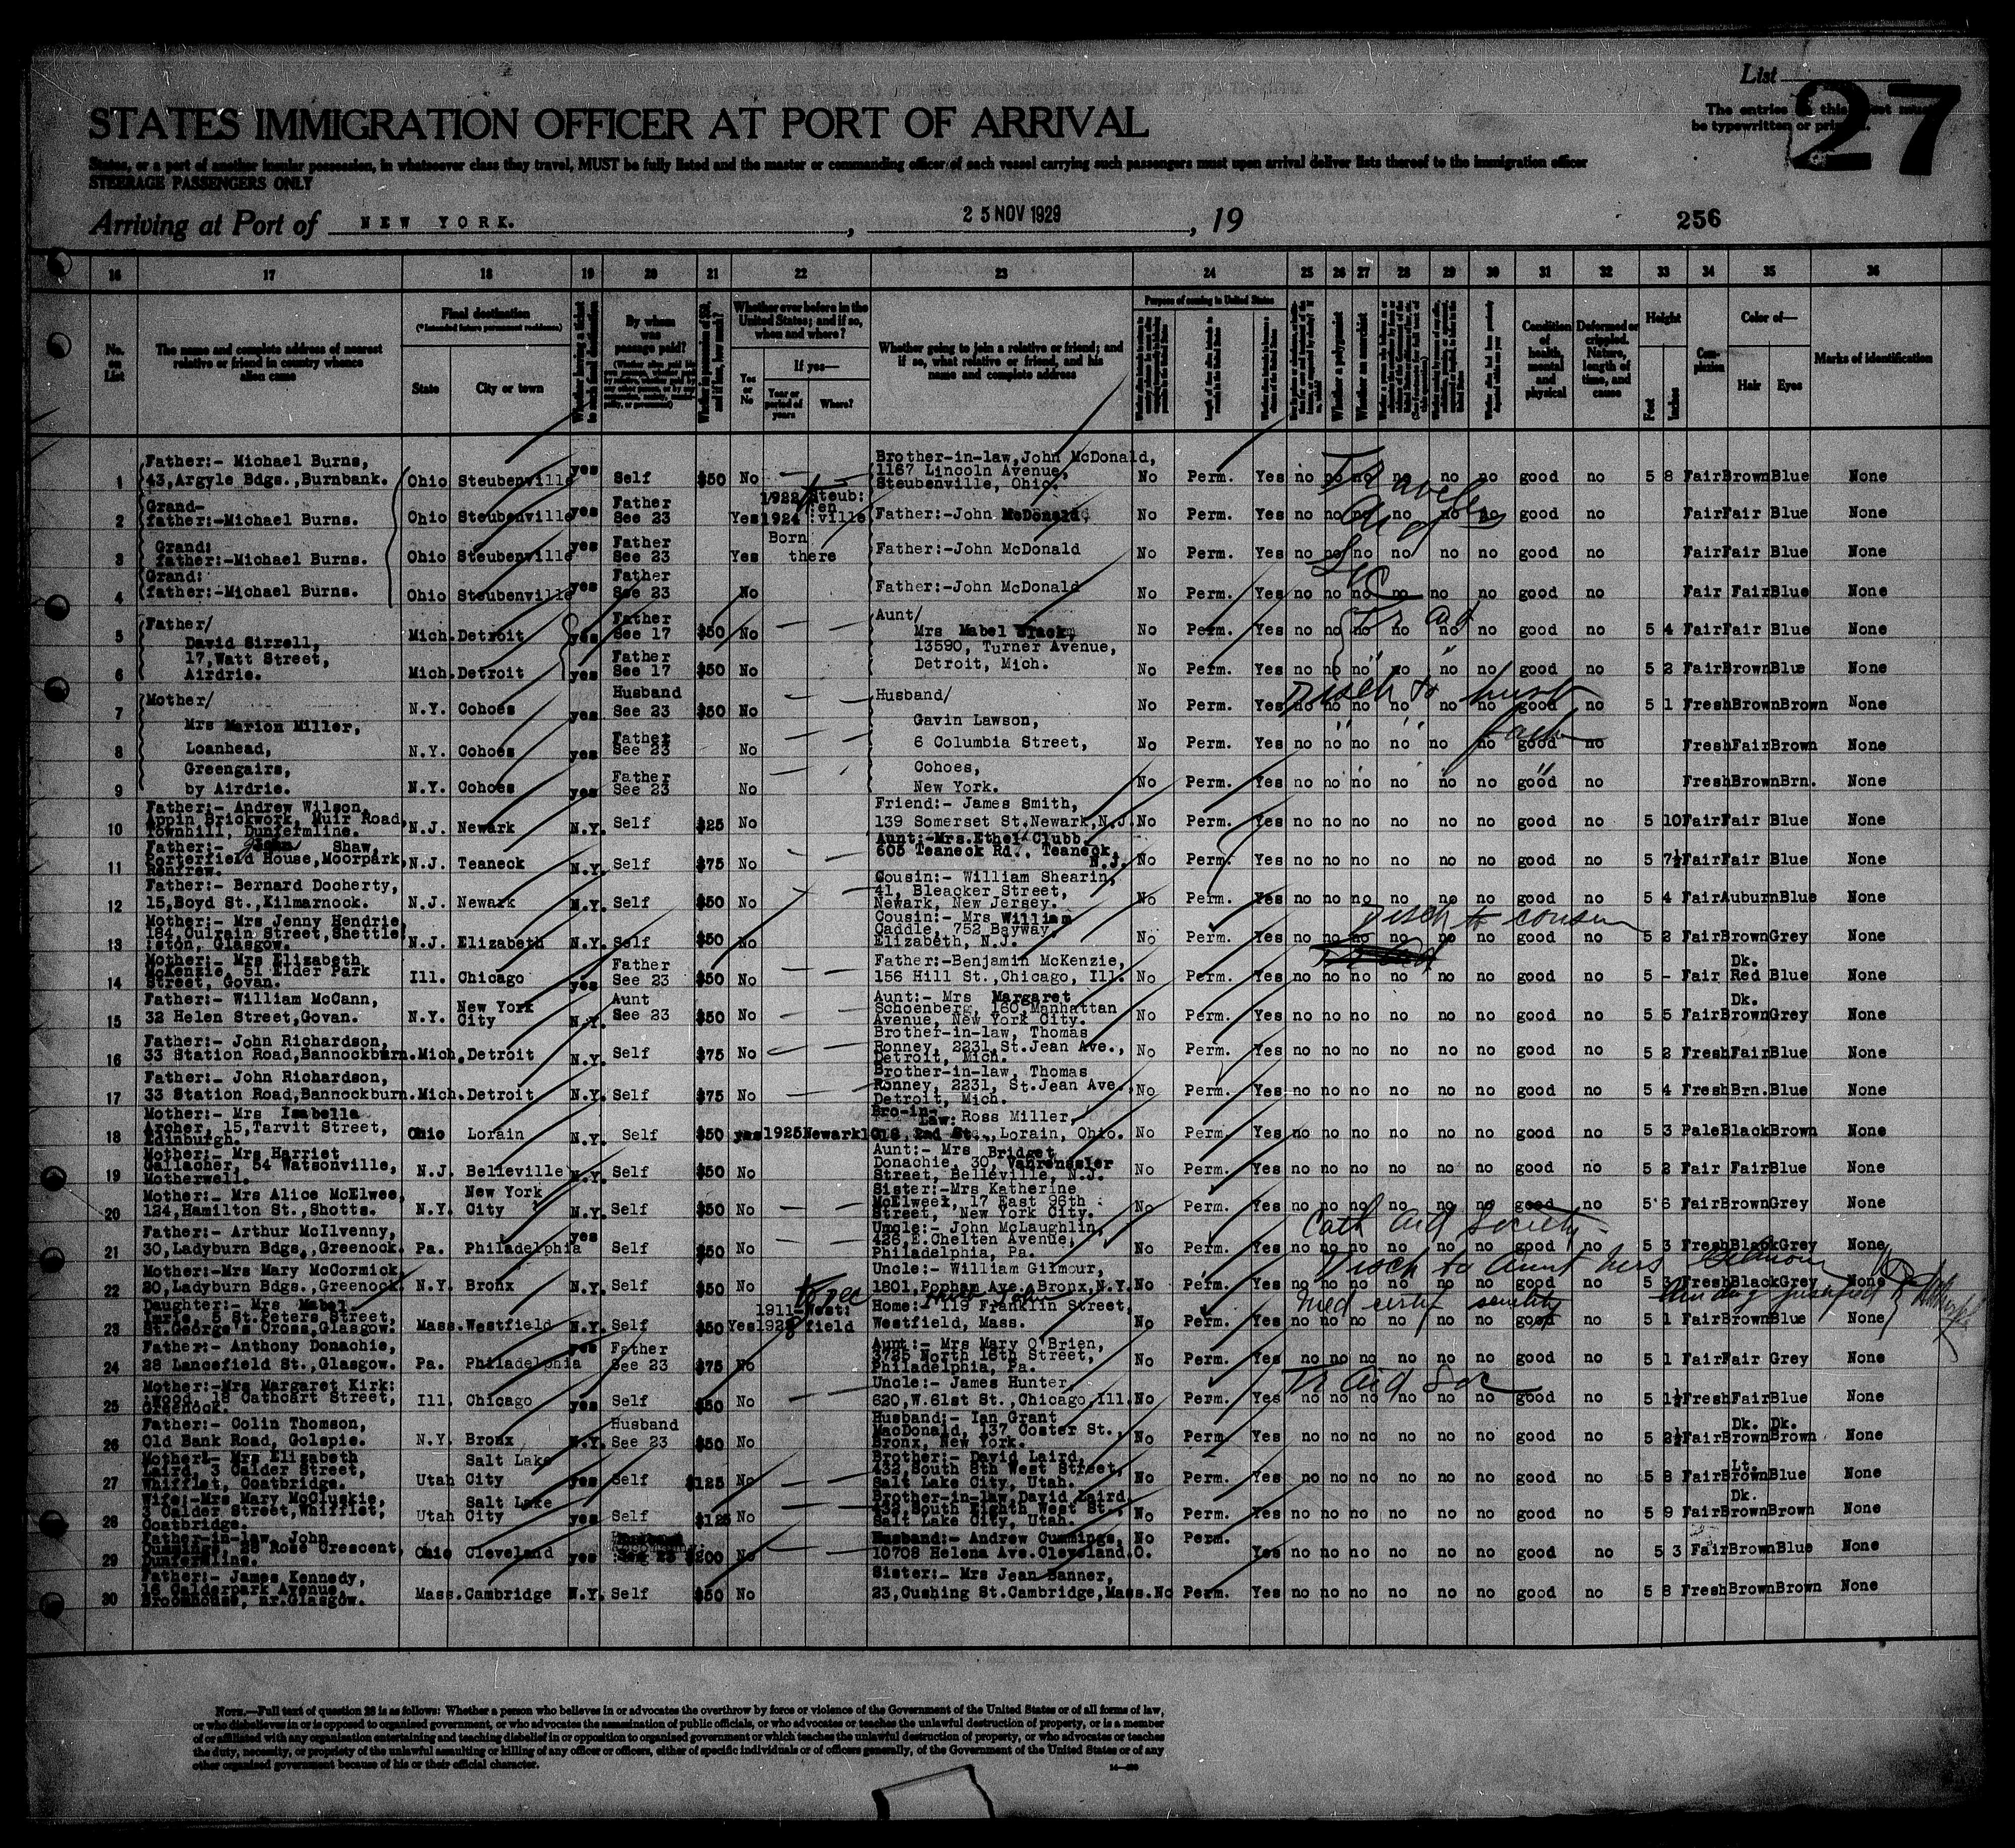 List
27
The entries on this sheet must
be typewritten or printed.
STATES IMMIGRATION OFFICER AT PORT OF ARRIVAL
States, or a part of another insular possession, in whatsoever class they travel, MUST be fully listed and the master or commanding officer of each vessel carrying such passengers must upon arrival deliver lists thereof to the immigration officer
STEERAGE PASSENGERS ONLY
Arriving at Port of NEW YORK. , 25 NOV 1929 , 19
256
16 17 18 19 20 21 22 23 24 25 26 27 28 29 30 31 32 33 34 35 36
No. on List
The name and complete address of nearest relative or friend in country whence alien came
Final destination
(*Intended future permanent residence)
State
City or town
By whom was passage paid?
Whether ever before in the United States; and if so, when and where?
Yes or No
If yes—
Year or period of years
Where?
Whether going to join a relative or friend; and if so, what relative or friend, and his name and complete address
Purpose of coming to United States
Whether a polygamist
Whether an anarchist
Condition of health, mental and physical
Deformed or crippled. Nature, length of time, and cause
Height
Feet
Inches
Complexion
Color of—
Hair
Eyes
Marks of identification
1 Father:- Michael Burns, 43,Argyle Bdgs.,Burnbank. Ohio Steubenville yes Self $50 No Brother-in-law,John McDonald, 1167 Lincoln Avenue, Steubenville, Ohio. No Perm. Yes no no no no no no good no 5 8 Fair Brown Blue None
2 Grand-father:-Michael Burns. Ohio Steubenville yes Father See 23 Yes 1922 1924 Steub:en ville Father:-John McDonald, No Perm. Yes no no no no no no good no Fair Fair Blue None
3 Grand: father:-Michael Burns. Ohio Steubenville yes Father See 23 Yes Born there Father:-John McDonald No Perm. Yes no no no no no no good no Fair Fair Blue None
4 Grand: father:-Michael Burns. Ohio Steubenville yes Father See 23 No Father:-John McDonald No Perm. Yes no no no no no no good no Fair Fair Blue None
Travelers Aid Soc
5 Father/ David Sirrell, Mich. Detroit yes Father See 17 $50 No Aunt/ Mrs Mabel Black, 13590, Turner Avenue, No Perm. Yes no no no no no good no 5 4 Fair Fair Blue None
Tr Aid
6 17,Watt Street, Airdrie. Mich. Detroit yes Father See 17 $50 No Detroit, Mich. No Perm. Yes no no no no no no good no 5 2 Fair Brown Blue None
7 Mother/ Mrs Marion Miller, N.Y. Cohoes yes Husband See 23 $50 No Husband/ Gavin Lawson, No Perm. Yes no no no no no no good no 5 1 Fresh Brown Brown None
Disch to husb
8 Loanhead, N.Y. Cohoes yes Father See 23 No 6 Columbia Street, No Perm. Yes no no no no no no good no Fresh Fair Brown None
9 Greengairs, by Airdrie. N.Y. Cohoes yes Father See 23 No Cohoes, New York. No Perm. Yes no no no no no no good no Fresh Brown Brn. None
10 Father:- Andrew Wilson, Appin Brickwork, Muir Road, Townhill, Dunfermline. N.J. Newark N.Y. Self $25 No Friend:- James Smith, 139 Somerset St.Newark,N.J. No Perm. Yes no no no no no no good no 5 10 Fair Fair Blue None
11 Father:- John Shaw, Porterfield House,Moorpark, Renfrew. N.J. Teaneck N.Y. Self $75 No Aunt:-Mrs.Ethel Clubb, 605 Teaneck Rd., Teaneck, N.J. No Perm. Yes no no no no no no good no 5 7½ Fair Fair Blue None
12 Father:- Bernard Docherty, 15,Boyd St.,Kilmarnock. N.J. Newark N.Y. Self $50 No Cousin:- William Shearin, 41, Bleacker Street, Newark, New Jersey. No Perm. Yes no no no no no no good no 5 4 Fair Auburn Blue None
Disch to cousin
13 Mother:- Mrs Jenny Hendrie, 184,Culrain Street,Shettle:ston, Glasgow. N.J. Elizabeth N.Y. Self $50 No Cousin:- Mrs William Caddle, 752 Bayway, Elizabeth, N.J. No Perm. Yes no no no no no no good no 5 2 Fair Brown Grey None
14 Mother:- Mrs Elizabeth McKenzie, 51 Elder Park Street, Govan. Ill. Chicago yes Father See 23 $50 No Father:-Benjamin McKenzie, 156 Hill St.,Chicago, Ill. No Perm. Yes no no no no no no good no 5 - Fair Dk. Red Blue None
15 Father:- William McCann, 32 Helen Street,Govan. N.Y. New York City N.Y. Aunt See 23 $50 No Aunt:- Mrs Margaret Schoenberg, 160,Manhattan Avenue, New York City. No Perm. Yes no no no no no no good no 5 5 Fair Dk. Brown Grey None
16 Father:- John Richardson, 33 Station Road,Bannockburn. Mich. Detroit N.Y. Self $75 No Brother-in-law, Thomas Ronney, 2231,St.Jean Ave., Detroit, Mich. No Perm. Yes no no no no no no good no 5 2 Fresh Fair Blue None
17 Father:- John Richardson, 33 Station Road,Bannockburn. Mich. Detroit N.Y. Self $75 No Brother-in-law, Thomas Ronney, 2231, St.Jean Ave. Detroit, Mich. No Perm. Yes no no no no no no good no 5 4 Fresh Brn. Blue None
18 Mother:- Mrs Isabella Archer, 15,Tarvit Street, Edinburgh. Ohio Lorain N.Y. Self $50 yes 1925 Newark Bro-in-Law: Ross Miller, 2nd St., Lorain, Ohio. No Perm. Yes no no no no no no good no 5 3 Pale Black Brown None
19 Mother:- Mrs Harriet Gallacher, 54 Watsonville, Motherwell. N.J. Belleville N.Y. Self $50 No Aunt:- Mrs Bridget Donachie, 30, Vanrenssler Street, Belleville, N.J. No Perm. Yes no no no no no no good no 5 2 Fair Fair Blue None
20 Mother:- Mrs Alice McElwee, 124,Hamilton St.,Shotts. N.Y. New York City N.Y. Self $50 No Sister:-Mrs Katherine McElweek, 17 East 96th Street, New York City. No Perm. Yes no no no no no no good no 5 6 Fair Brown Grey None
Cath Aid Society
21 Father:- Arthur McIlvenny, 30,Ladyburn Bdgs.,Greenock. Pa. Philadelphia yes Self $50 No Uncle:- John McLaughlin, 426,E.Chelten Avenue, Philadelphia, Pa. No Perm. Yes no no no no no no good no 5 3 Fresh Black Grey None
Disch to Aunt Mrs
22 Mother:-Mrs Mary McCormick, 20,Ladyburn Bdgs.,Greenock N.Y. Bronx N.Y. Self $50 No Uncle:- William Gilmour, 1801,Popham Ave.,Bronx,N.Y. No Perm. Yes no no no no no no good no 5 3 Fresh Black Grey None
Med certif senility
23 Daughter:- Mrs Mabel Imrie, 5 St.Peters Street, St.George's Cross,Glasgow. Mass. Westfield N.Y. Self $50 Yes 1911- West:field Home:- 119 Franklin Street, Westfield, Mass. No Perm. Yes no no no no no no good no 5 1 Fair Brown Blue None
24 Father:- Anthony Donachie, 28 Lancefield St.,Glasgow. Pa. Philadelphia yes Father See 23 $75 No Aunt:- Mrs Mary O'Brien, 3725 North 16th Street, Philadelphia, Pa. No Perm. Yes no no no no no no good no 5 1 Fair Fair Grey None
Tr Aid Soc
25 Mother:-Mrs Margaret Kirk:wood, 18 Cathcart Street, Greenock. Ill. Chicago yes Self $50 No Uncle:- James Hunter, 620,W.61st St.,Chicago,Ill. No Perm. Yes no no no no no no good no 5 1½ Fresh Fair Blue None
26 Father:- Colin Thomson, Old Bank Road, Golspie. N.Y. Bronx N.Y. Husband See 23 $50 No Husband:- Ian Grant MacDonald, 137 Coster St., Bronx, New York. No Perm. Yes no no no no no no good no 5 2½ Fair Dk. Brown Dk. Brown None
27 Mother:- Mrs Elizabeth Laird, 3 Calder Street, Whifflet, Coatbridge. Utah Salt Lake City yes Self $125 No Brother:- David Laird, 432,South 8th West Street, Salt Lake City, Utah. No Perm. Yes no no no no no no good no 5 8 Fair Lt. Brown Blue None
28 Wife:-Mrs Mary McCluskie, 3 Calder Street,Whifflet, Coatbridge. Utah Salt Lake City yes Self $125 No Brother-in-law,David Laird, South Eighth West St., Salt Lake City, Utah. No Perm. Yes no no no no no no good no 5 9 Fair Dk. Brown Brown None
29 Father-in-law, John Cummings, 28 Rose Crescent, Dunfermline. Ohio Cleveland yes $200 No Husband:- Andrew Cummings, 10708 Helena Ave.Cleveland.O. No Perm. Yes no no no no no no good no 5 3 Fair Brown Blue None
30 Father:- James Kennedy, 16 Calderpark Avenue, Broomhouse, nr.Glasgow. Mass. Cambridge N.Y. Self $50 No Sister:- Mrs Jean Banner, 23,Cushing St.Cambridge,Mass. No Perm. Yes no no no no no no good no 5 8 Fresh Brown Brown None
NOTE.—Full text of question 28 is as follows: Whether a person who believes in or advocates the overthrow by force or violence of the Government of the United States or of all forms of law,
or who disbelieves in or is opposed to organized government, or who advocates the assassination of public officials, or who advocates or teaches the unlawful destruction of property, or is a member
of or affiliated with any organization entertaining and teaching disbelief in or opposition to organized government or which teaches the unlawful destruction of property, or who advocates or teaches
the duty, necessity, or propriety of the unlawful assaulting or killing of any officer or officers, either of specific individuals or of officers generally, of the Government of the United States or of any
other organized government because of his or their official character.